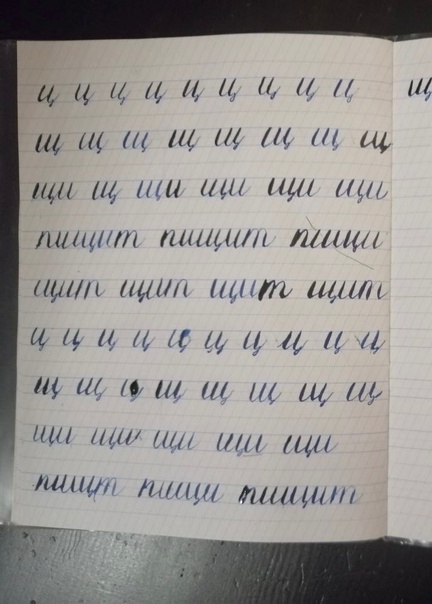 ц ц ц ц ц ц ц ц ц
щ щ щ щ щ щ щ щ щ
щи щ щи щи щи щи
пищит пищит пищи
щит щит щит щит
ц ц ц ц ц ц ц ц ц ц
щ щ щ щ щ щ щ щ
щи щи щи щи щи
пищит пищи пищит